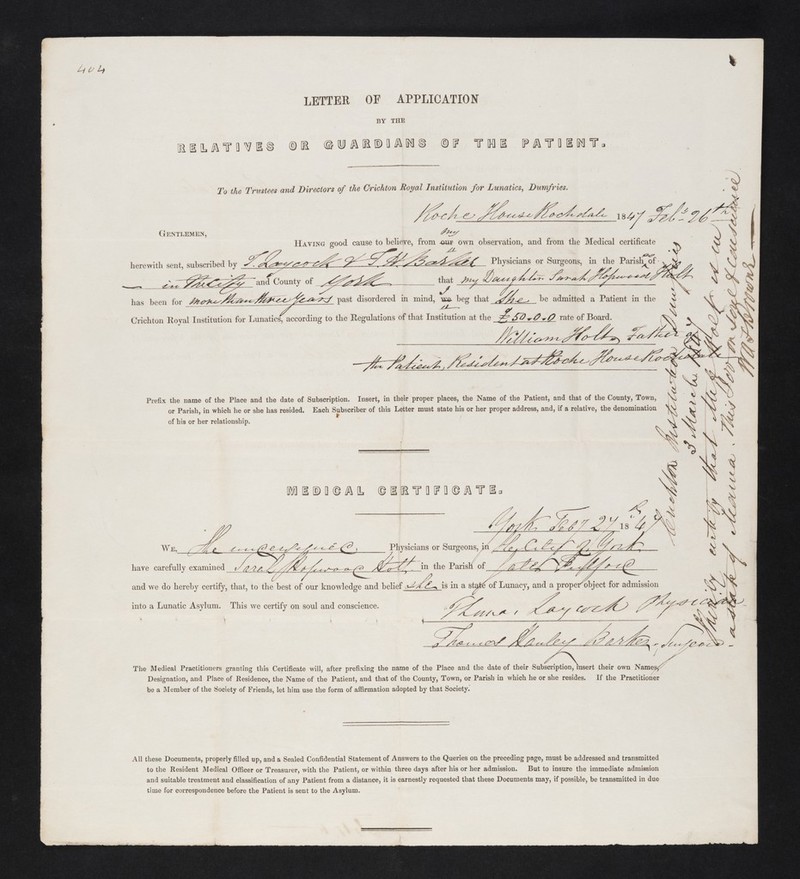 404
LETTER OF APPLICATION
BY THE
RELATIVES OR GUARDIANS OF THE PATIENT.
To the Trustees and Directors of the Crichton Royal Institution for Lunatics, Dumfries.
Roche House Rochdale 1847 Feb. 26th
GENTLEMEN,
my
HAVING good cause to believe, from our own observation, and from the Medical certificate
herewith sent, subscribed by T. Laycock & T. H. Barker Physicians or Surgeons, in the Parish of
in the City and County of York that my Daughter Sarah Hopwood Holt
has been for more than three years past disordered in mind, we beg that She be admitted a Patient in the
I
Crichton Royal Institution for Lunatics, according to the Regulations of that Institution at the £50.0.0 rate of Board.
William Holt Father of
the Patient, Resident at Roche House Rochdale
Prefix the name of the Place and the date of Subscription. Insert, in their proper places, the Name of the Patient, and that of the County, Town,
or Parish, in which he or she has resided. Each Subscriber of this Letter must state his or her proper address, and, if a relative, the denomination
of his or her relationship.
MEDICAL CERTIFICATE.
York Feby 27 1847
WE, the undersigned Physicians or Surgeons, in the City of York
have carefully examined Sarah Hopwood Holt in the Parish of
and we do hereby certify, that, to the best of our knowledge and belief she is in a state of Lunacy, and a proper object for admission
into a Lunatic Asylum. This we certify on soul and conscience.
Thomas Laycock Physician
Thomas Hanley Barker, Surgeon.
The Medical Practitioners granting this Certificate will, after prefixing the name of the Place and the date of their Subscription, insert their own Names,
Designation, and Place of Residence, the Name of the Patient, and that of the County, Town, or Parish in which he or she resides. If the Practitioner
be a Member of the Society of Friends, let him use the form of affirmation adopted by that Society.
All these Documents, properly filled up, and a Sealed Confidential Statement of Answers to the Queries on the preceding page, must be addressed and transmitted
to the Resident Medical Officer or Treasurer, with the Patient, or within three days after his or her admission. But to insure the immediate admission
and suitable treatment and classification of any Patient from a distance, it is earnestly requested that these Documents may, if possible, be transmitted in due
time for correspondence before the Patient is sent to the Asylum.
Crichton Institution Dumfries
3 March 1847
I hereby certify that Miss Holt is in
a state of Mania. This I do on Soul & Conscience